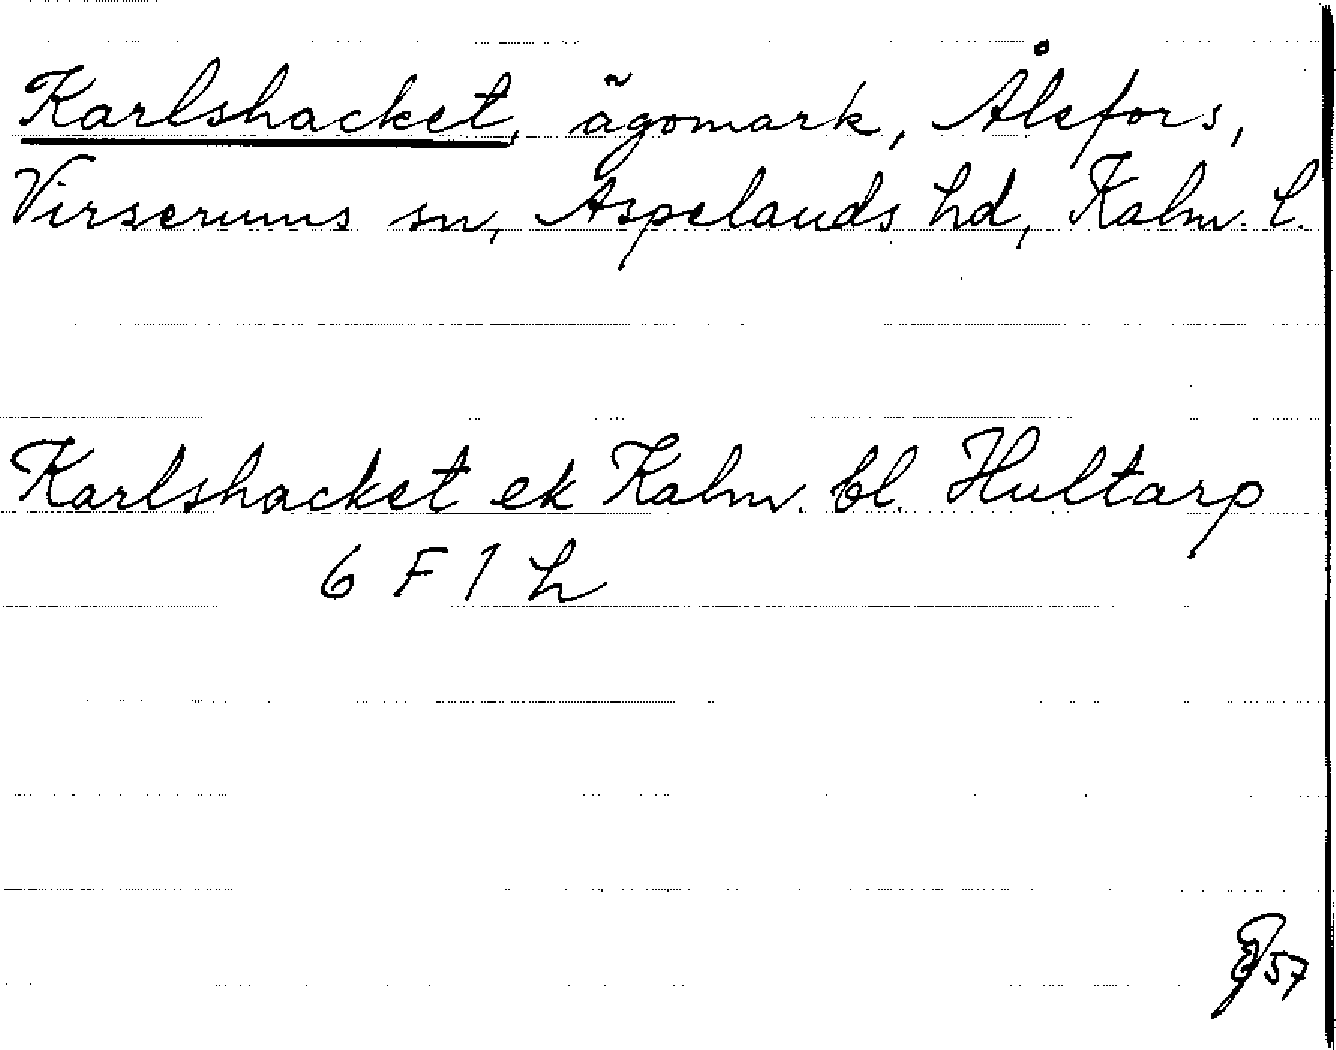 Karlshacket, ägomark, Ålefors,
Virserums sn, Aspelands hd, Kalm. l.
Karlshacket ek Kalm. bl. Hultarp
6 F 1 h
57